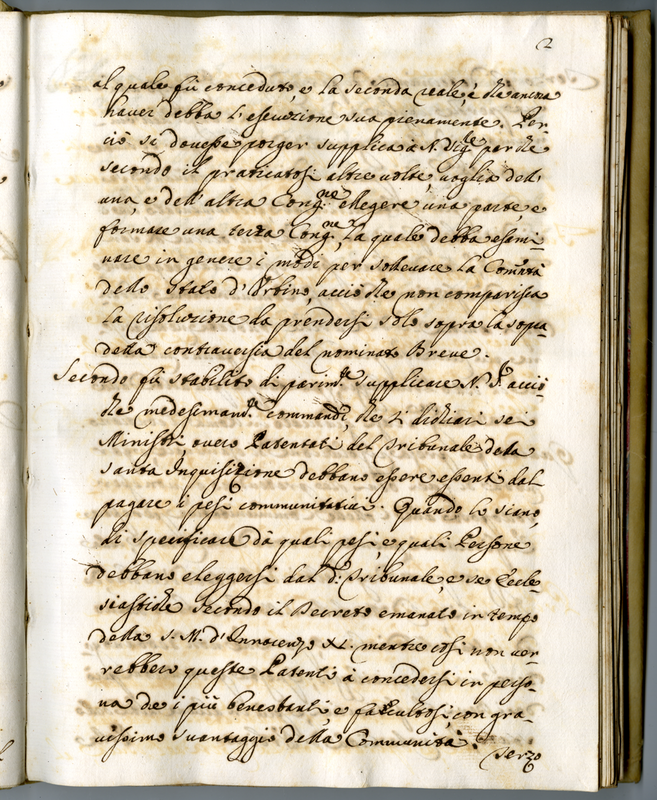 2
al quale fù conceduto, e la seconda reale, è che ancora
haver debba l'esecuzione sua pienamente. Per-
ciò si dovesse porger supplica à N. Sig.re perche
secondo il praticatosi altre volte, voglia dell'
una, e dell'altra Cong.ne eleggere una parte, e
formare una terza Cong.ne la quale debba esami-
nare in genere i modi per sollevare la Com̃nta
dello stato d'Urbino, acciò che non comparisca
la risoluzione da prendersi solo sopra la sopra-
datta contraversia del nominato Breve.
Secondo fù stabilito di parim.te supplicare N. S.re acciò
che medesimam.te commandi, che si dichiari se i
Ministri, overo Patentati del Tribunale della
Santa Inquisizione debbano essere essenti dal
pagare i pesi communitativi. Quando lo siano,
di specificare dà quali pesi, e quali Persone
debbano eleggersi dal d.o Tribunale, e se Eccle-
siastiche secondo il Decreto emanato in tempo
della S. M. d'Innocenzo XI. mentre così non ver-
rebbero queste Patenti à concedersi in perso-
na de i più benestanti, e facultosi, con gra-
vissimo svantaggio della Communità.
Terzo